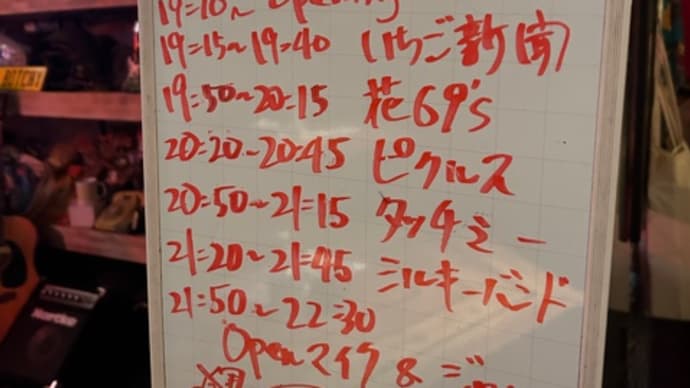 19=10~ Opening
19=15~19=40 いちご新聞
19=50~20=15 花69's
20=20~20=45 ピクルス
20=50~21=15 タッチミー
21=20~21=45 ミルキーバンド
21=50~22=30
Openマイク &